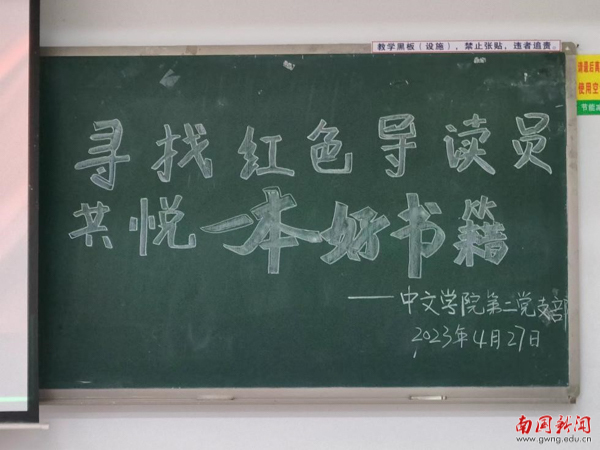 教学黑板（设施），禁止张贴，违者追责。
寻找红色导读员
共悦一本好书籍
——中文学院第二党支部
2023年4月27日
使用空
节能减
南国新闻
www.gwng.edu.cn